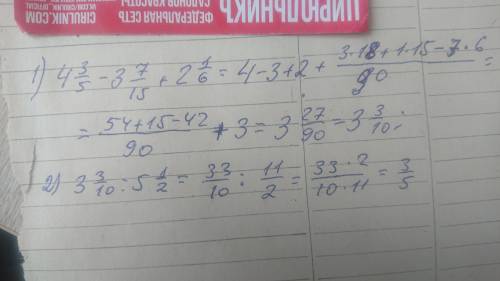 ЦИРЮЛЬНИКЪ
ФЕДЕРАЛЬНАЯ СЕТЬ
САЛОНОВ КРАСОТЫ
CIRULNIK.COM
1) 4 3/5 - 3 7/15 + 2 1/6 = 4 - 3 + 2 + (3·18 + 1·15 - 7·6)/90 =
= (54 + 15 - 42)/90 + 3 = 3 27/90 = 3 3/10;
2) 3 3/10 : 5 1/2 = 33/10 : 11/2 = (33·2)/(10·11) = 3/5